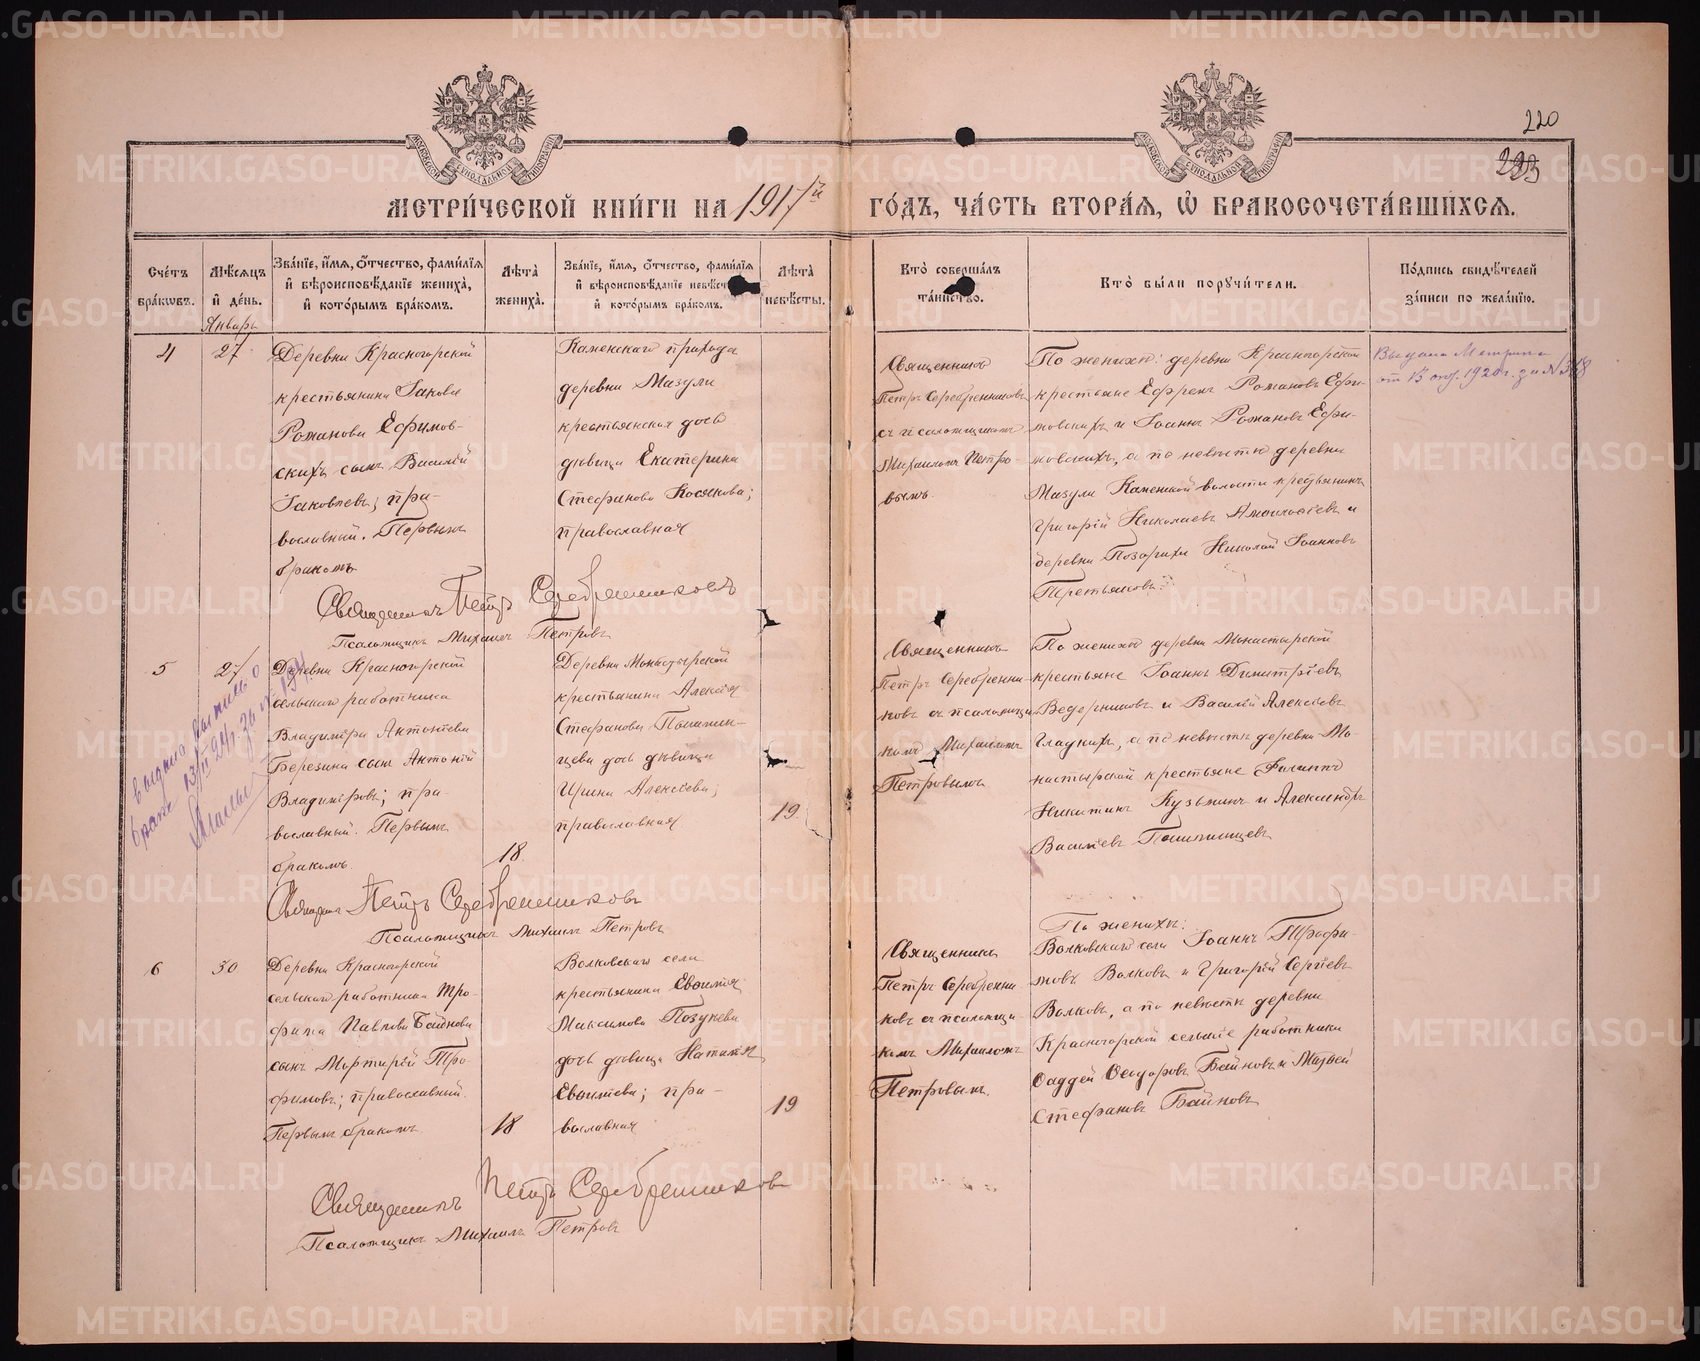 220
223
МЕТРИ́ЧЕСКОЙ КНИ́ГИ НА 1917й ГО́ДЪ, ЧА́СТЬ ВТОРА́Я, Ѡ҆ БРАКОСОЧЕТА́ВШИХСЯ.
Сче́тъ бра́кѡвъ.
Мѣ́сяцъ и҆ де́нь.
Зва́нїе, и҆́мя, ѻ҆́тчество, фами́лїя
и҆ вѣроисповѣ́данїе жениха̀,
и҆ кото́рымъ бра́комъ.
Лѣ́та̀ жениха̀.
Зва́нїе, и҆́мя, ѻ҆́тчество, фами́лїя
и҆ вѣроисповѣ́данїе невѣ́сты
и҆ кото́рымъ бра́комъ.
Лѣ́та̀ невѣ́сты.
Кто̀ соверша́лъ та́инство.
Кто̀ бы́ли порꙋчи́тели.
По́дпись свидѣ́телей
за́писи по жела́нїю.
Январь
4
27
Деревни Красногорской
крестьянина Іакова
Романова Ефимов-
скихъ сынъ Василій
Іаковлевъ; пра-
вославный. Первымъ
бракомъ
Каменскаго прихода
деревни Мазули
крестьянская дочь
дѣвица Екатерина
Стефанова Косякова;
православная
Священникъ
Петръ Серебренниковъ
съ псаломщикомъ
Михаиломъ Петро-
вымъ.
По женихѣ: деревни Красногорской
крестьяне Ефремъ Романовъ Ефи-
мовскихъ и Іоаннъ Романовъ Ефи-
мовскихъ, а по невѣстѣ деревни
Мазули Каменской волости крестьянинъ
Григорій Николаевъ и
деревни Позарихи Николай Іоанновъ
Третьяковъ.
Выдана Метрика
от 15 1920 г. за №
Священникъ Петръ Серебренниковъ
Псаломщикъ Михаилъ Петровъ
5
27
Деревни Красногорской
сельскаго работника
Владиміра Антоніева
Березина сынъ Антоній
Владиміровъ; пра-
вославный. Первымъ
бракомъ.
18
Деревни Монастырской
крестьянина Алексія
Стефанова
дочь дѣвица
Ирина Алексіева;
православная
19
Священникъ
Петръ Серебренни-
ковъ съ псаломщи-
комъ Михаиломъ
Петровымъ
По женихѣ деревни Монастырской
крестьяне Іоаннъ Димитріевъ
Ведерниковъ и Василій Алексіевъ
Гладкихъ, а по невѣстѣ деревни Мо-
настырской крестьяне Филиппъ
Никитинъ Кузьминъ и Александръ
Василіевъ
выдана выпись о
браке
Священникъ Петръ Серебренниковъ
Псаломщикъ Михаилъ Петровъ
6
30
Деревни Красногорской
сельскаго работника Тро-
фима Павлова Байнова
сынъ Мартирій Тро-
фимовъ; православный.
Первымъ бракомъ
18
Волковскаго села
крестьянина Евфимія
Максимова
дочь дѣвица Наталія
Евфиміева; пра-
вославная
19
Священникъ
Петръ Серебренни-
ковъ съ псаломщи-
комъ Михаиломъ
Петровымъ.
По женихѣ:
Волковскаго села Іоаннъ Трофи-
мовъ Волковъ и Григорій Сергіевъ
Волковъ, а по невѣстѣ деревни
Красногорской сельскіе работники
Фаддей Ѳеодоровъ Байновъ и Матѳей
Стефановъ Байновъ
Священникъ Петръ Серебренниковъ
Псаломщикъ Михаилъ Петровъ
METRIKI.GASO-URAL.RU